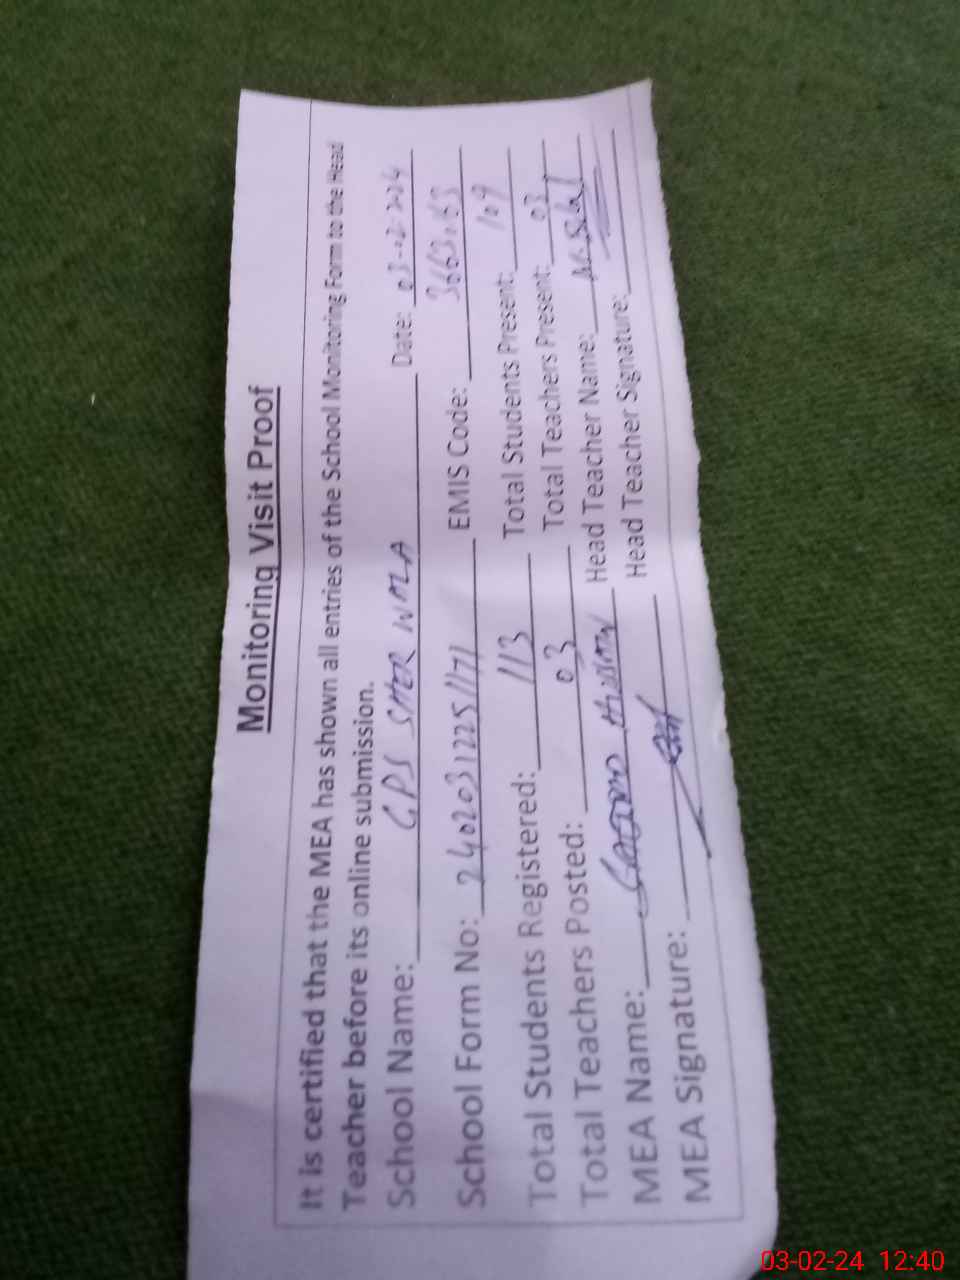 Monitoring Visit Proof
It is certified that the MEA has shown all entries of the School Monitoring Form to the Head
Teacher before its online submission.
School Name: GPS SHER WALA Date: 03-02-2024
School Form No: 24020312251171 EMIS Code:
Total Students Registered: 113 Total Students Present: 109
Total Teachers Posted: 03 Total Teachers Present: 03
MEA Name: Head Teacher Name:
MEA Signature: Head Teacher Signature:
03-02-24 12:40